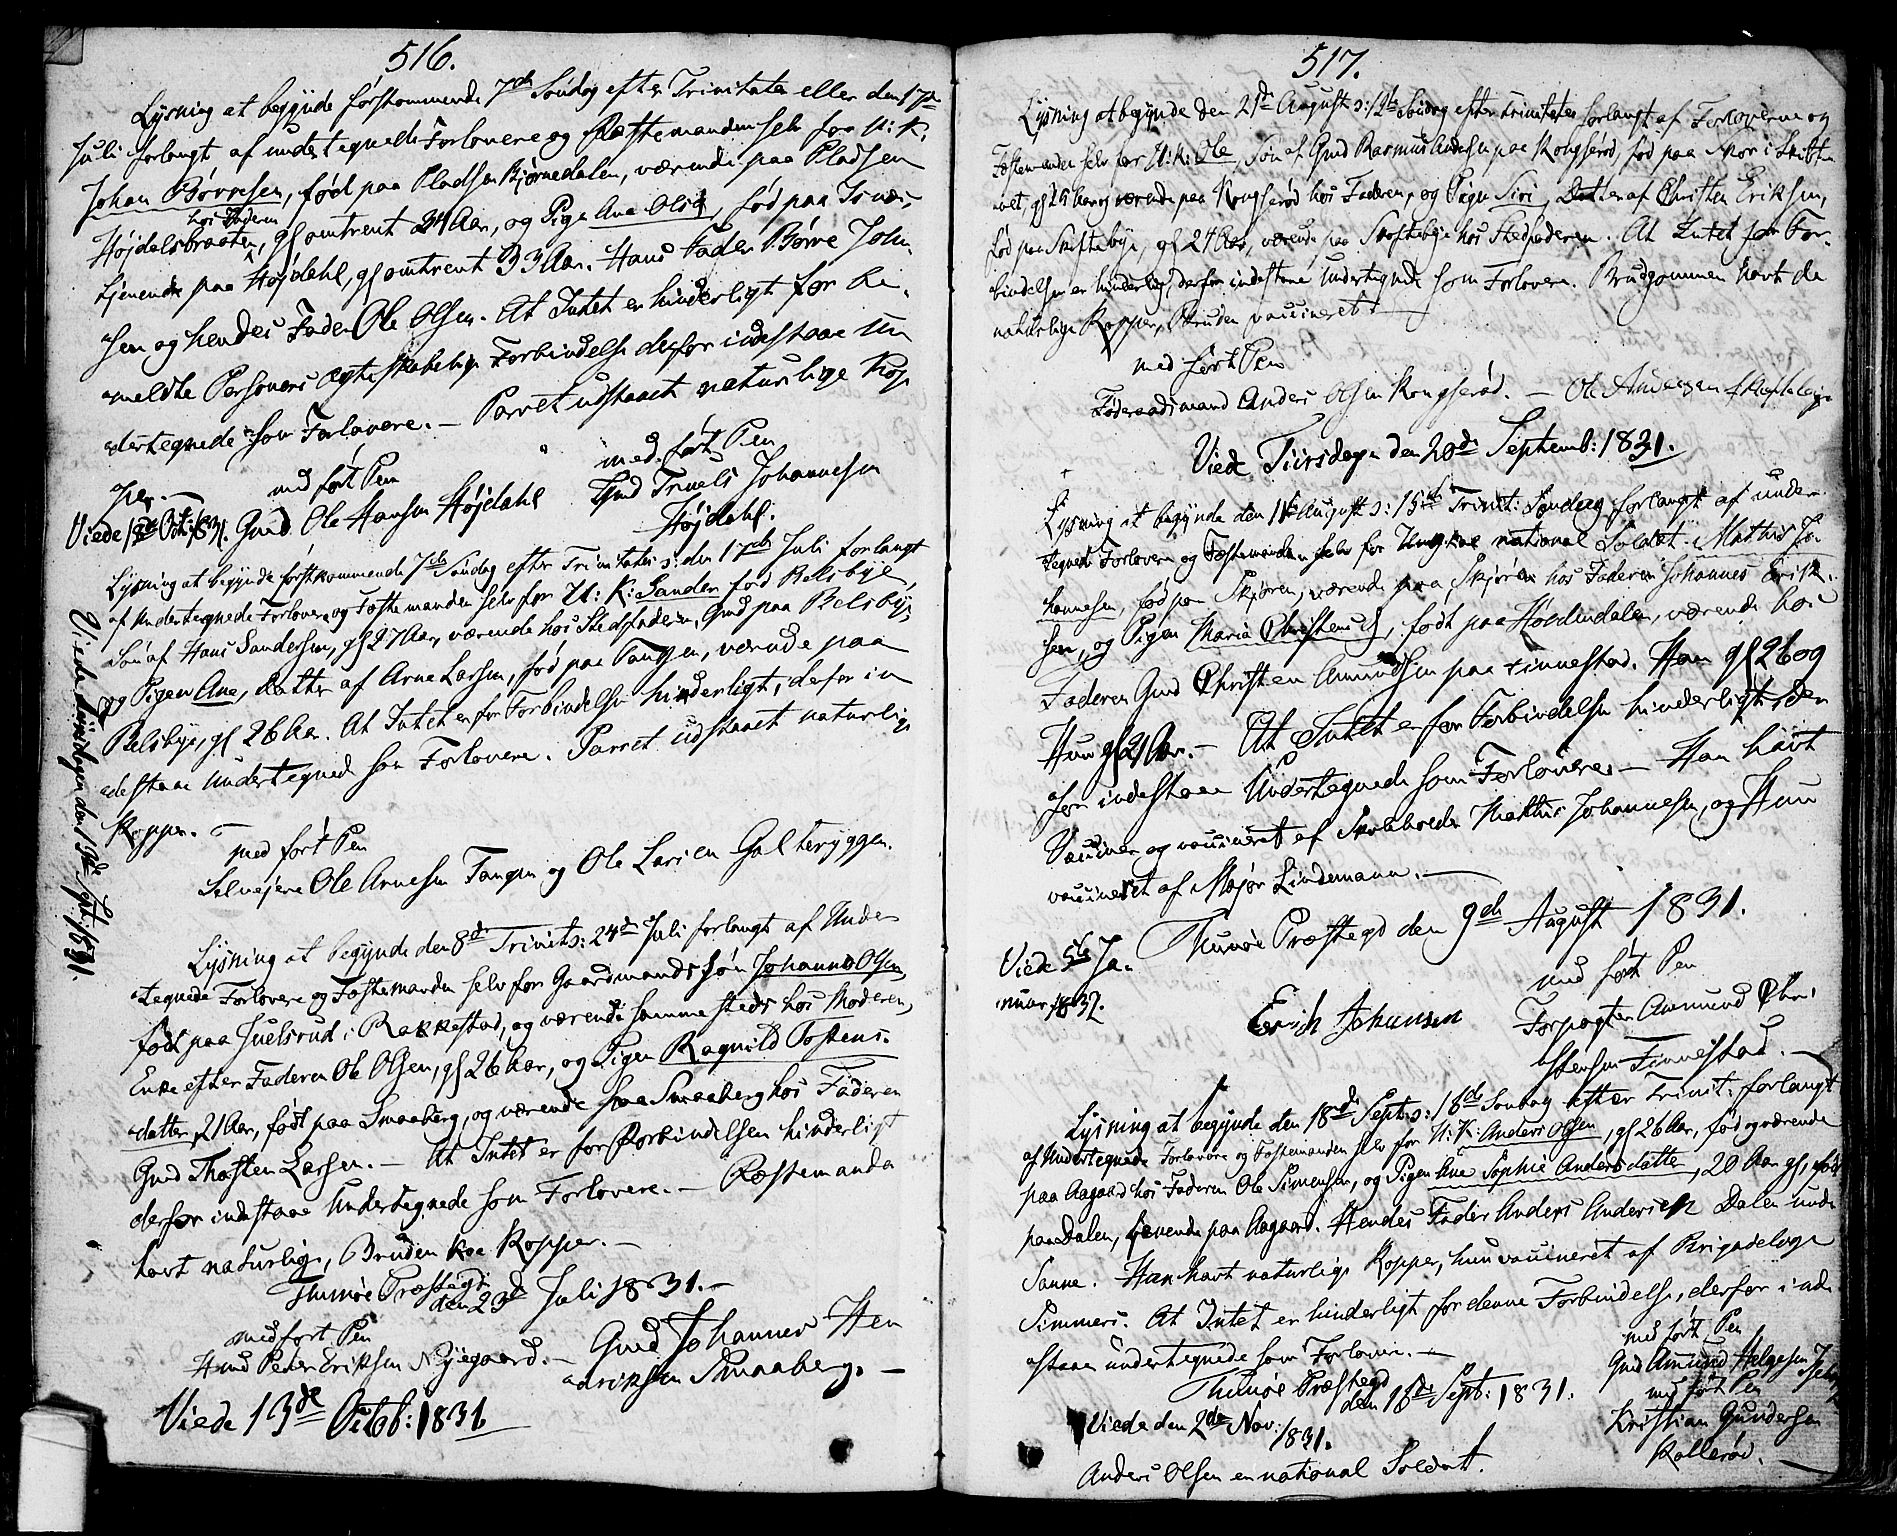 516.
Lysning at begynde førstkommende 7de Søndag efter Trinitatis eller den 17de
Juli forlangt af undertegnede Forlovere og Fæstemanden selv for U: K:
Johan Børresen, fød paa Pladsen Bjørnedalen, værende paa Pladsen
hos Faderen
Højdalsbraaten, gl omtrent 24 Aar, og Pige Ane Olsd, fød paa
tjenende paa Højdahl, gl omtrent 33 Aar. Hans Fader Børre John
sen og hendes Fader Ole Olsen. At Intet er hinderligt for be-
meldte Personers ægteskabelige Forbindelse derfor indestaae Un
dertegnede som Forlovere. – Parret udstaaet naturlige Kop
per. –
med ført Pen
med ført Pen
Gmd Truels Johannesen
Højdahl.
Viede 18de Oct: 1831. Gmd Ole Hansen Højdahl
Lysning at begynde førstkommende 7de Søndag efter Trinitatis ɔ: den 17de Juli forlangt
af Undertegnede Forlovere og Fæstemanden selv for U: K: Sander fød Relsbye
Søn af Hans Sandersen, gl 27 Aar, værende hos Stedfaderen, Gmd paa Relsbye,
og Pigen Ane, Datter af Arne Larsen, fød paa Tangen, værende paa
Relsbye, gl 26 Aar. At Intet er for Forbindelsen hinderligt, derfor in
destaae Undertegnede som Forlovere. Parret udstaaet naturlige
Kopper. –
med ført Pen
Selvejere Ole Arnesen Tangen og Ole Larsen Galteryggen.
Viede Tiirsdagen den 19de Sept: 1831.
Lysning at begynde den 8de Trinit: ɔ: 24de Juli forlangt af Under
tegnede Forlovere og Fæstemanden selv for Gaardmandssøn Johannes Olsen,
født paa Juelsrud i Rakkestad, og værende sammesteds hos Moderen,
Enke efter Faderen Ole Olsen, gl 26 Aar, og Pigen Ragnild Tostens-
datter, 21 Aar, født paa Smaaberg, og værende paa Smaaberg hos Faderen
Gmd Thosten Larsen. – At Intet er for Forbindelsen hinderligt
derfor indestaae Undertegnede som Forlovere. – Fæstemanden
havt naturlige, Bruden Koe Kopper. –
Thunøe Præstegd
den 23d Juli 1831. –
med ført Pen
Hmd Peder Eriksen Nÿegaard. –
Gmd Johannes Hen
driksen Smaaberg. –
Viede 13de Octb: 1831
517.
Lysning at begynde den 21de August ɔ: 12te Søndag efter Trinitatis forlangt af Forloverne og
Fæstemanden selv for U: K: Ole, Søn af Gmd Rasmus Andersen paa Kongserød, fød paa Moer i Skibtve
net, gl 25 Aar og værende paa Kongserød hos Faderen, og Pigen Siri, Datter af Christen Eriksen,
fød paa Skoftebye, gl 24 Aar, værende paa Skoftebye hos Stedfaderen. At Intet for For-
bindelsen er hinderlig, derfor indestaae Undertegnede som Forlovere. Brudgommen havt de
naturlige Kopper, Bruden vaccineret. –
med ført Pen
Føderaadsmand Anders Olsen Kongserød. – Ole Andersen Skoftebye
Viede Tiirsdagen den 20de Septemb: 1831.
Lysning at begynde den 11te August ɔ: 15de Trinit: Søndag forlangt af under
tegnede Forlovere og Fæstemanden selv for Ungkar national Soldat: Mathis Jo
hannesen, fød paa Skjøren, værende paa Skjøren hos Faderen Johannes Erik-
sen, og Pigen Maria Christensd, født paa Høldindalen, værende hos
Faderen Gmd Christen Amundsen paa Finnestad. Han gl 26 og
Hun gl 21 Aar. – At Intet er for Forbindelsen hinderligt, der
for indestaae Undertegnede som Forlovere. – Han havt
Vacciner og vaccineret af Skoleholder Mathis Johannesen, og Hun
vaccineret af Major Lindemann. –
Thunøe Præstegd den 9de August 1831.
Viede 5te Ja-
nuar 1832.
Erich Johansen
med ført Pen
Forpagter Amund Chri
stensen Finnestad. –
Lysning at begynde den 18de Sept: ɔ: 16de Søndag efter Trinit: forlangt
af Undertegnede Forlovere og Fæstemanden selv for U: K: Anders Olsen, gl 26 Aar, fød og værende
paa Aagaard hos Faderen Ole Simensen, og Pigen Ane Sophie Andersdatter, 20 Aar gl, fød
paa Dalen, tjenende paa Aagaard. Hendes Fader Anders Andersen Dalen unde
Sanne. Han havt naturlige Kopper, hun vaccineret af Brigadelæge
Simmers. At Intet er hinderligt for denne Forbindelse, derfor inde
staae undertegnede som Forlovere. –
Thunøe Præstegd
den 18de Sept: 1831.
med ført Pen
Gmd Amund Helgesen
med ført Pen
Kristian Gundersen
Kallerød. –
Viede den 2de Nov:
1831.
Anders Olsen en national Soldat.